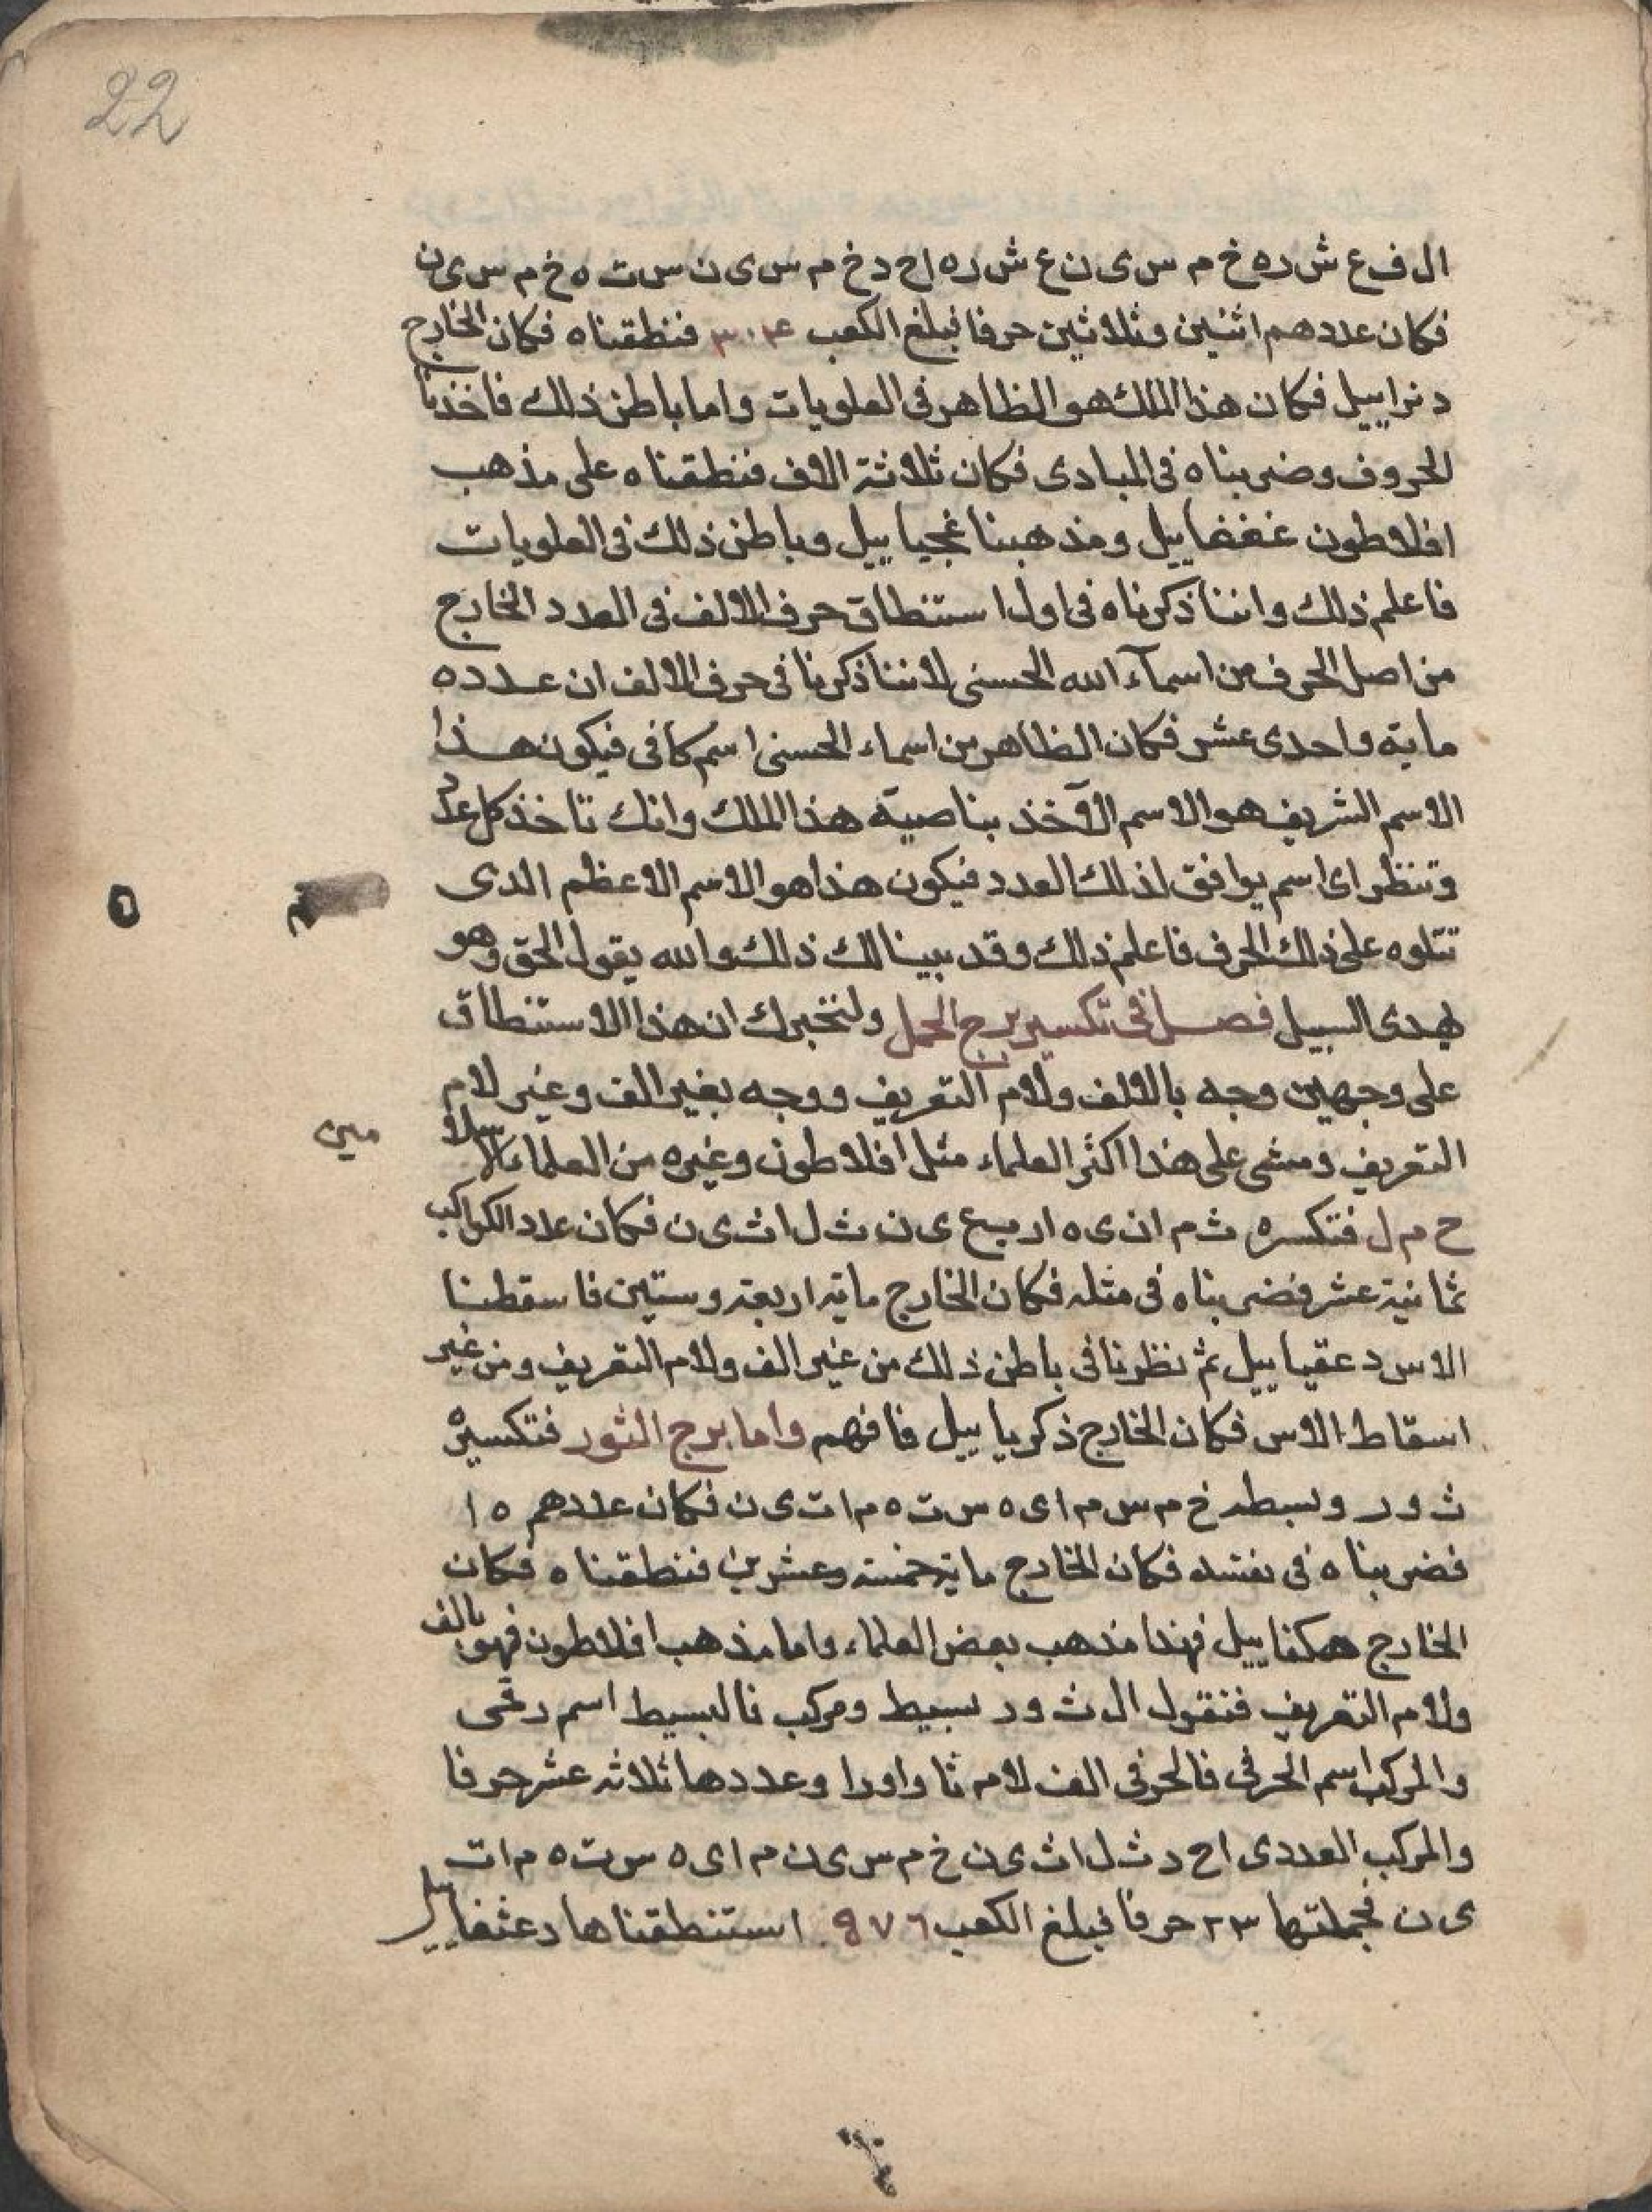 22
ال ف ع ش ر ه خ م س ى ن ع ش ر ه ا ح د خ م س ى ن س ت ه خ م س ى ن
فكان عددهم اثنين وثلاثين حرفا فبلغ الكعب فنطقناه فكان الخارج
دنراييل فكان هذا الملك هو الظاهر فى العلويات واما باطن ذلك فاخذنا
الحروف وضربناه فى المبادى فكان ثلاثة الاف فنطقناه على مذهب
افلاطون غغغاييل ومذهبنا غجياييل وباطن ذلك فى العلويات
فاعلم ذلك واننا ذكرناه فى اول استنطاق حرف الالف فى العدد الخارج
من اصل الحرف من اسمآء الله الحسنى لاننا ذكرنا فى حرف الالف ان عدده
ماية واحدى عشر فكان الظاهر من اسماء الحسنى اسم كافى فيكون هذا
الاسم الشريف هو الاسم الآخذ بناصية هذا الملك وانك تاخذ كل عدد
وتنظر اى اسم يوافق لذلك العدد فيكون هذا هو الاسم الاعظم الدى
تتلوه على ذلك الحرف فاعلم ذلك وقد بينا لك ذلك والله يقول الحق وهو
يهدى السبيل فصل فى تكسير برج الحمل ولنخبرك ان هذا الاستنطاق
على وجهين وجه بالالف ولام التعريف ووجه بغير الف وغير لام
التعريف ومشى على هذا اكثر العلماء مثل افلاطون وغيره من العلماء الاسلا
مين
ح م ل فتكسره ث م ا ن ى ه ا ر ب ع ى ن ث ل ا ث ى ن فكان عدد الكواكب
ثمانية عشر فضربناه فى مثله فكان الخارج ماية اربعة وستين فاسقطنا
الاس دعقياييل ثم نظرنا فى باطن ذلك من غير الف ولام التعريف ومن غير
اسقاط الاس فكان الخارج ذكرياييل فافهم واما برج الثور فتكسيره
ث و ر وبسطه خ م س م ا ى ه س ت ه م ا ت ى ن فكان عددهم ١٥
فضربناه فى نفسه فكان الخارج ماية خمسة وعشرين فنطقناه فكان
الخارج هكفاييل فهذا مذهب بعض العلماء واما مذهب افلاطون فهو بالف
ولام التعريف فنقول ال ث و ر بسيط ومركب فالبسيط اسم رقمى
والمركب اسم الحرفى فالحرفى الف لام ثا واو را وعددها ثلاثه عشر حرفا
والمركب العددى ا ح د ث ل ا ث ى ن خ م س ى ن م ا ى ه س ت ه م ا ت
ى ن فجملتها ٢٣ حرفا فبلغ الكعب ٩٧٦ استنطقناها دعثفاييل